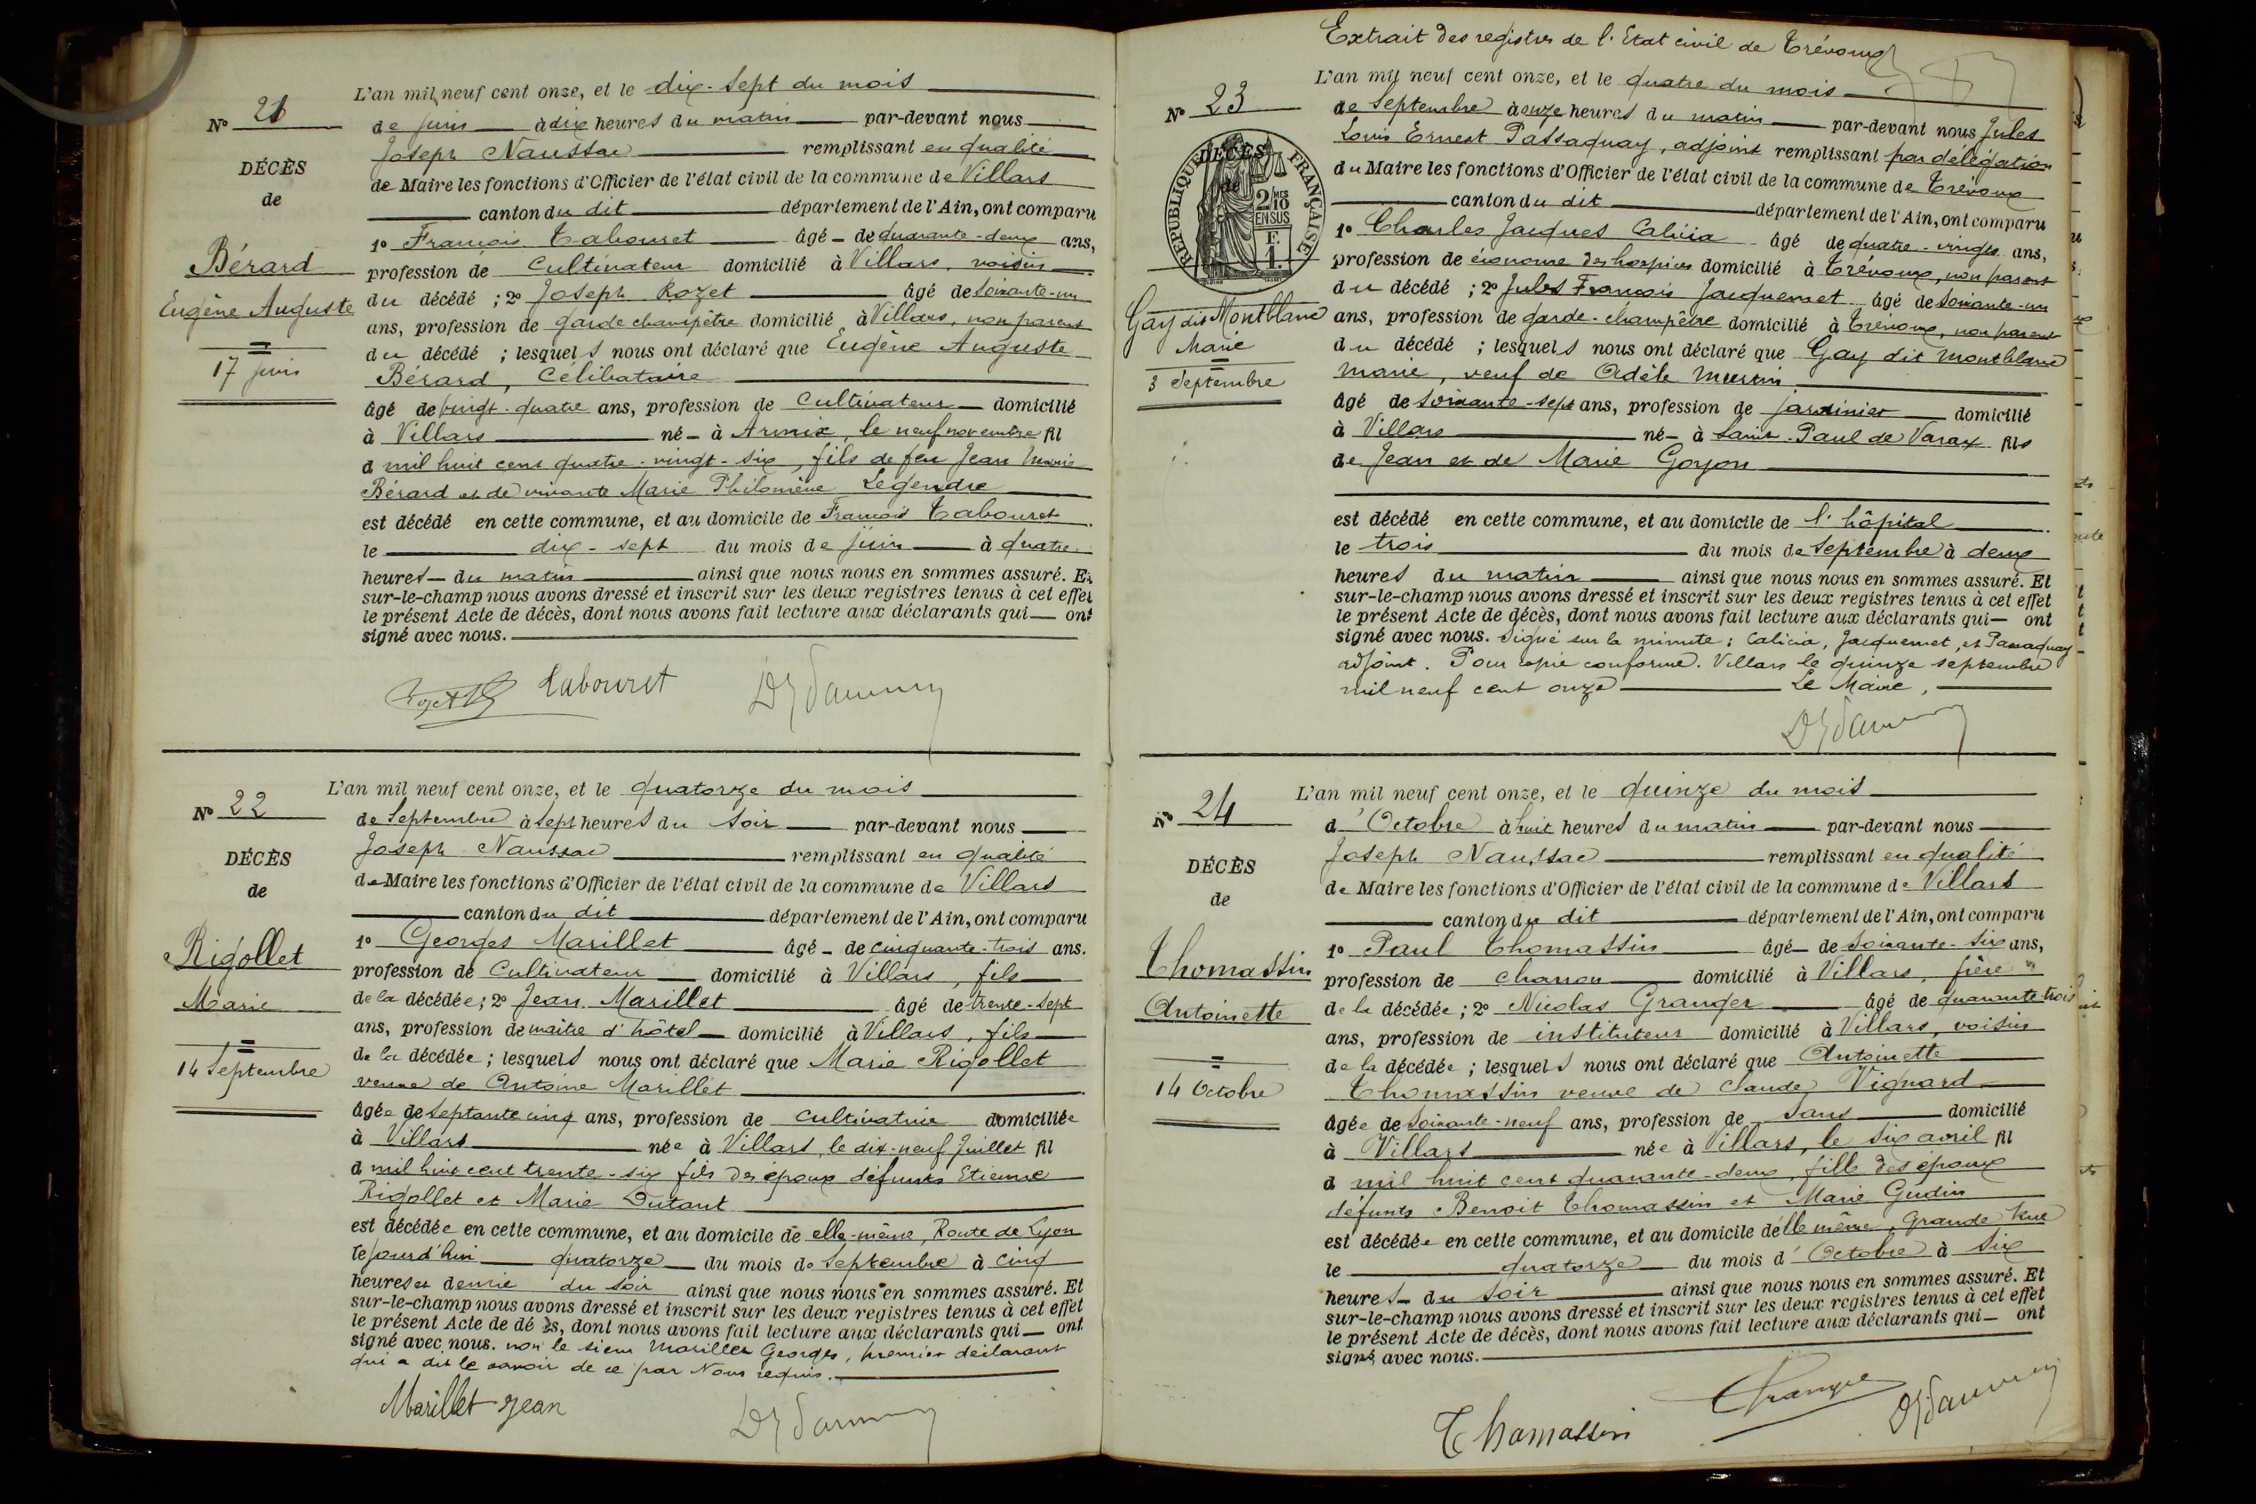 N° 21
DÉCÈS
de
Bérard
Eugène Auguste
17 juin
L'an mil neuf cent onze, et le dix-sept du mois
de juin à dix heures du matin par-devant nous
Joseph Naussac remplissant en qualité
de Maire les fonctions d'Officier de l'état civil de la commune de Villars
canton du dit département de l'Ain, ont comparu
1° François Tabouret âgé de quarante-deux ans,
profession de Cultivateur domicilié à Villars, voisin
du décédé ; 2° Joseph Rozet âgé de soixante-un
ans, profession de garde champêtre domicilié à Villars, non parent
du décédé ; lesquels nous ont déclaré que Eugène Auguste
Bérard, Célibataire
âgé de vingt-quatre ans, profession de Cultivateur domicilié
à Villars né à Armix, le neuf novembre fil
d mil huit cent quatre-vingt-six, fils de feu Jean Marie
Bérard et de vivante Marie Philomène Legendre
est décédé en cette commune, et au domicile de François Tabouret
le dix-sept du mois de juin à quatre
heures du matin ainsi que nous nous en sommes assuré. Et
sur-le-champ nous avons dressé et inscrit sur les deux registres tenus à cet effet
le présent Acte de décès, dont nous avons fait lecture aux déclarants qui ont
signé avec nous.
Tabouret
N° 22
DÉCÈS
de
Rigollet
Marie
14 Septembre
L'an mil neuf cent onze, et le quatorze du mois
de Septembre à sept heures du soir par-devant nous
Joseph Naussac remplissant en qualité
de Maire les fonctions d'Officier de l'état civil de la commune de Villars
canton du dit département de l'Ain, ont comparu
1° Georges Marillet âgé de cinquante-trois ans.
profession de Cultivateur domicilié à Villars, fils
de la décédée ; 2° Jean Marillet âgé de trente-sept
ans, profession de maître d'hôtel domicilié à Villars, fils
de la décédée ; lesquels nous ont déclaré que Marie Rigollet
veuve de Antoine Marillet
âgée de septante cinq ans, profession de cultivatrice domiciliée
à Villars née à Villars, le dix-neuf Juillet fil
d mil huit cent trente-six fils des époux défunts Etienne
Rigollet et Marie Dutant
est décédée en cette commune, et au domicile de elle-même, Route de Lyon
le jourd'hui quatorze du mois de Septembre à cinq
heures et demie du soir ainsi que nous nous en sommes assuré. Et
sur-le-champ nous avons dressé et inscrit sur les deux registres tenus à cet effet
le présent Acte de dé ès, dont nous avons fait lecture aux déclarants qui ont
signé avec nous. non le sieur Marillet Georges, premier déclarant
qui a dit le savoir de ce par Nous requis.
Marillet Jean
Extrait des registres de l'Etat civil de Trévoux
N° 23
DÉCÈS
de
RÉPUBLIQUE FRANÇAISE
2/10 MES
EN SUS
F.
1.
Gay dit Montblanc
Marie
3 Septembre
L'an mil neuf cent onze, et le quatre du mois
de Septembre à onze heures du matin par-devant nous Jules
Louis Ernest Passaquay, adjoint remplissant par délégation
du Maire les fonctions d'Officier de l'état civil de la commune de Trévoux
canton du dit département de l'Ain, ont comparu
1° Charles Jacques Calicia âgé de quatre-vingts ans,
profession de économe des hospices domicilié à Trévoux, non parent
du décédé ; 2° Jules François Jacquemet âgé de soixante-un
ans, profession de garde-champêtre domicilié à Trévoux, non parent
du décédé ; lesquels nous ont déclaré que Gay dit Montblanc
Marie, veuf de Adèle
âgé de soixante-sept ans, profession de jardinier domicilié
à Villars né à Saint-Paul de Varax fils
de Jean et de Marie Goyon
est décédé en cette commune, et au domicile de l'hôpital
le trois du mois de Septembre à deux
heures du matin ainsi que nous nous en sommes assuré. Et
sur-le-champ nous avons dressé et inscrit sur les deux registres tenus à cet effet
le présent Acte de décès, dont nous avons fait lecture aux déclarants qui ont
signé avec nous. Signé sur la minute : Calicia, Jacquemet, et Passaquay
adjoint. Pour copie conforme. Villars le quinze septembre
mil neuf cent onze Le Maire,
N° 24
DÉCÈS
de
Thomassin
Antoinette
14 Octobre
L'an mil neuf cent onze, et le quinze du mois
d'Octobre à huit heures du matin par-devant nous
Joseph Naussac remplissant en qualité
de Maire les fonctions d'Officier de l'état civil de la commune de Villars
canton du dit département de l'Ain, ont comparu
1° Paul Thomassin âgé de soixante-six ans,
profession de charron domicilié à Villars, frère
de la décédée ; 2° Nicolas Granger âgé de quarante-trois
ans, profession de instituteur domicilié à Villars, voisin
de la décédée ; lesquels nous ont déclaré que Antoinette
Thomassin veuve de Claude Vignard
âgée de soixante-neuf ans, profession de sans domicilié
à Villars née à Villars, le six avril fil
d mil huit cent quarante-deux, fille des époux
défunts Benoit Thomassin et Marie Gudin
est décédée en cette commune, et au domicile d'elle même, Grande Rue
le quatorze du mois d'Octobre à six
heures du soir ainsi que nous nous en sommes assuré. Et
sur-le-champ nous avons dressé et inscrit sur les deux registres tenus à cet effet
le présent Acte de décès, dont nous avons fait lecture aux déclarants qui ont
signé avec nous.
Thomassin